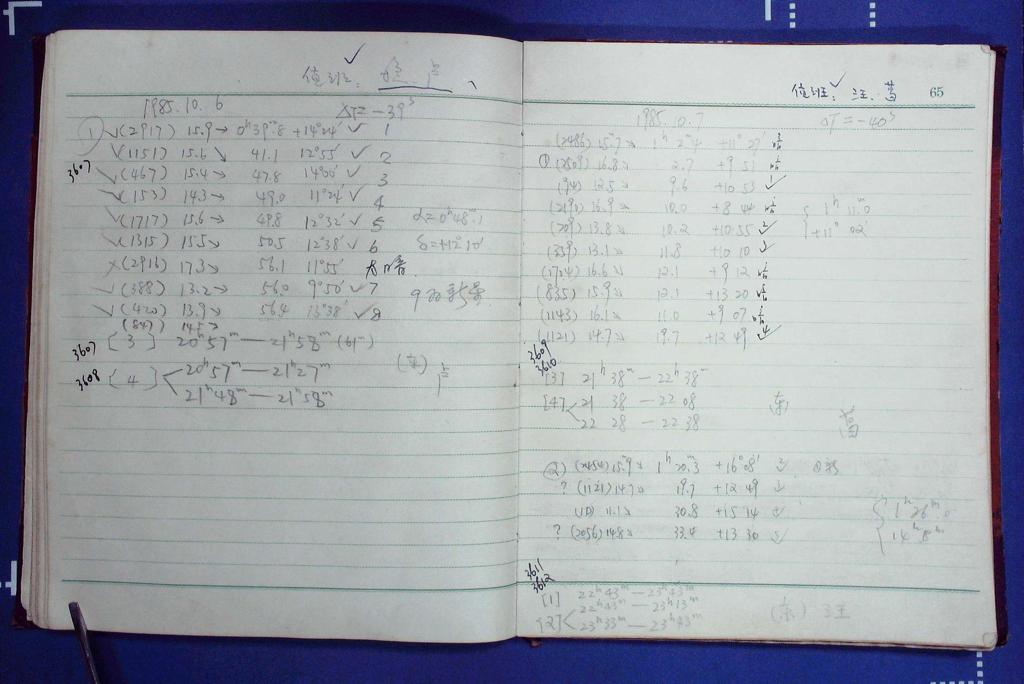 值班:
1985.10.6 ΔT=-39ˢ
① √(2917) 15.9→ 0ʰ39ᵐ.8 +14°24′ ✓ 1
√(1151) 15.6↘ 41.1 12°55′ ✓ 2
3607
√(467) 15.4→ 47.8 14°00′ ✓ 3
√(153) 14.3→ 49.0 11°24′ ✓ 4
√(1717) 15.6→ 49.8 12°32′ ✓ 5
α=0ʰ48ᵐ.1
√(1315) 15.5↘ 50.5 12°38′ ✓ 6
δ=+12°10′
×(2916) 17.3↘ 56.1 11°55′ 太暗.
√(388) 13.2→ 56.0 9°50′ ✓ 7
√(420) 13.9↘ 56.4 13°38′ ✓ 8
(847) 14.5↘
3607 [3] 20ʰ57ᵐ—21ʰ58ᵐ (61ᵐ)
3608 [4] 20ʰ57ᵐ—21ʰ27ᵐ
21ʰ48ᵐ—21ʰ58ᵐ
(东)
值班: 汪. 葛 65
1985.10.7 ΔT=-40ˢ
(2486) 15.7↘ 1ʰ2ᵐ.4 +11°27′ 暗
① (2509) 16.8↘ 2.7 +9 51 暗
(94) 12.5↘ 9.6 +10 53 1✓
(2191) 16.9↘ 10.0 +8 44 暗
1ʰ11ᵐ.0
(709) 13.8↘ 10.2 +10 55 2✓
+11° 02′
(559) 13.1↘ 11.8 +10 10 3✓
(1704) 16.6↘ 12.1 +9 12 暗
(835) 15.9↘ 12.1 +13 20 暗
(1143) 16.1↘ 11.0 +9 07 暗
(1121) 14.7↘ 19.7 +12 49 4✓
3609
3610
[3] 21ʰ38ᵐ—22ʰ38ᵐ
[4] 21 38—22 08 (东) 葛
22 28—22 38
② (2454) 15.9↘ 1ʰ20ᵐ.3 +16°08′
? (1121) 14.7↘ 19.7 +12 49
(10) 11.1↘ 30.8 +15 14
1ʰ26ᵐ.0
? (2056) 14.8↘ 33.4 +13 30
3611
3612
[1] 22ʰ43ᵐ—23ʰ43ᵐ
[2] 22ʰ43ᵐ—23ʰ13ᵐ
23ʰ33ᵐ—23ʰ43ᵐ (东) 汪